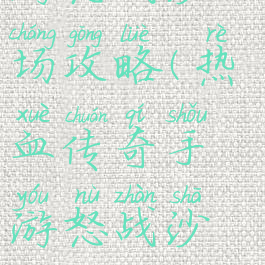 chǎng gōng lüè rè
场攻略(热
xuè chuán qí shǒu
血传奇手
yóu nù zhàn shā
游怒战沙